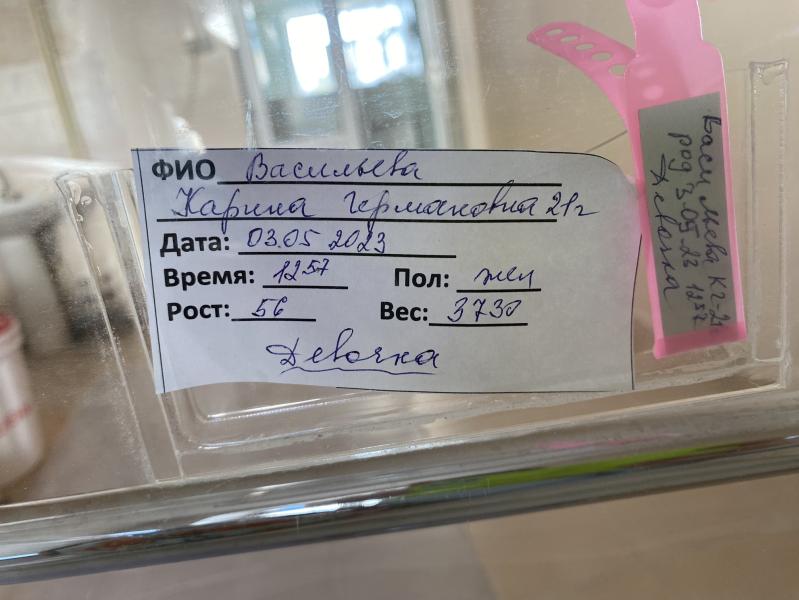 ФИО Васильева
Карина Германовна 21г
Дата: 03.05 2023
Время: 1257 Пол: жен
Рост: 56 Вес: 3730
Девочка
Васильева КГ-21
род 3.05.23 1257
Девочка